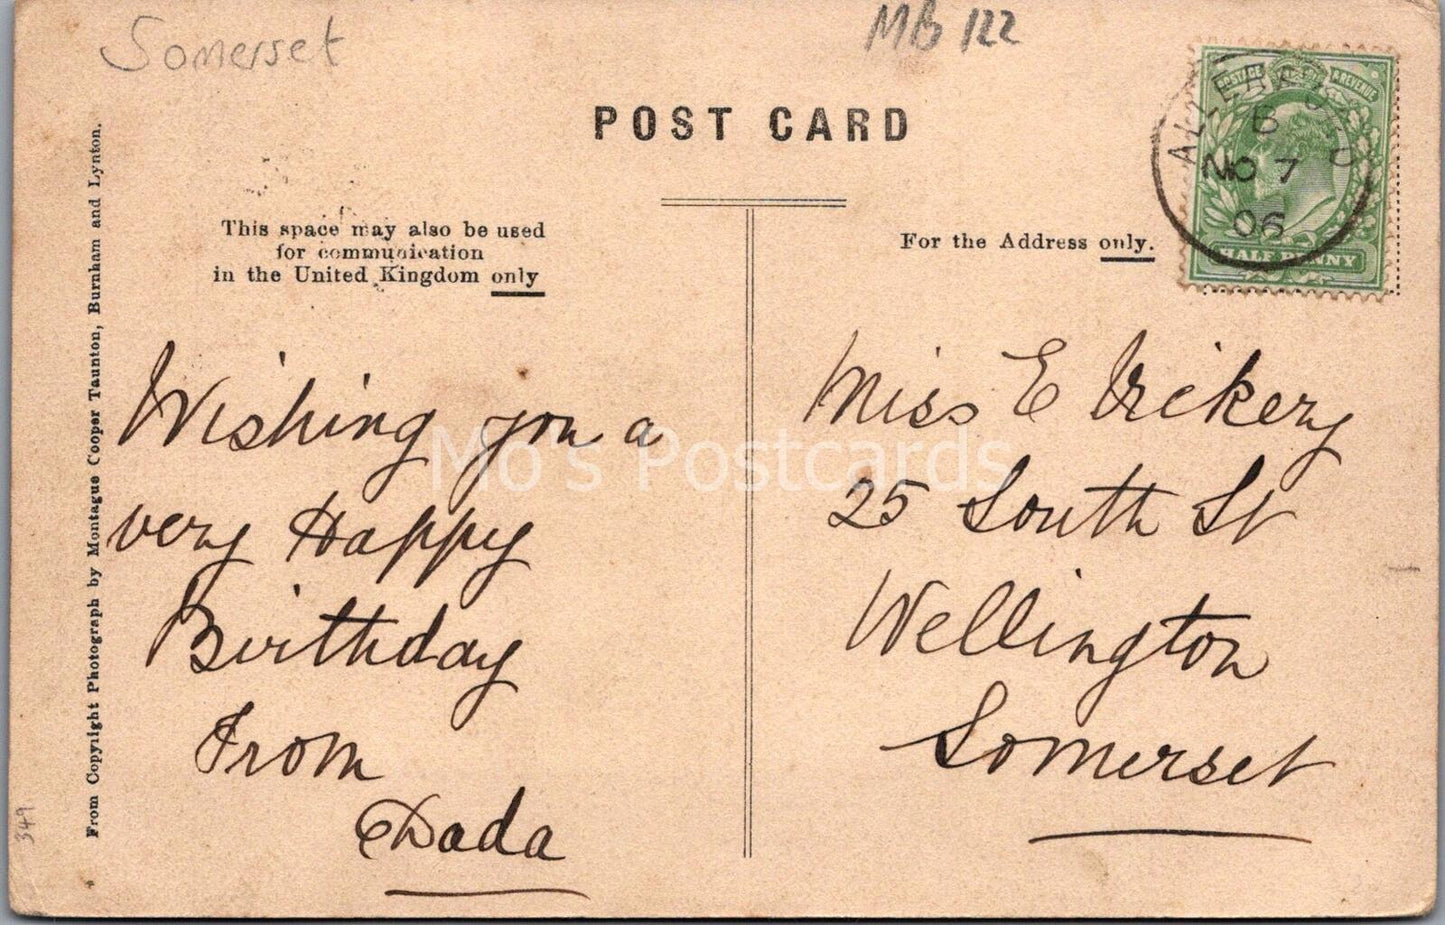 Somerset
MB 122
POST CARD
ALLERFORD
B
NO 7
06
POSTAGE & REVENUE
HALF PENNY
This space may also be used
for communication
in the United Kingdom only
For the Address only.
Wishing you a
very Happy
Birthday
From
Dada
Miss E Vickery
25 South St
Wellington
Somerset
From Copyright Photograph by Montague Cooper Taunton, Burnham and Lynton.
349
Mo's Postcards